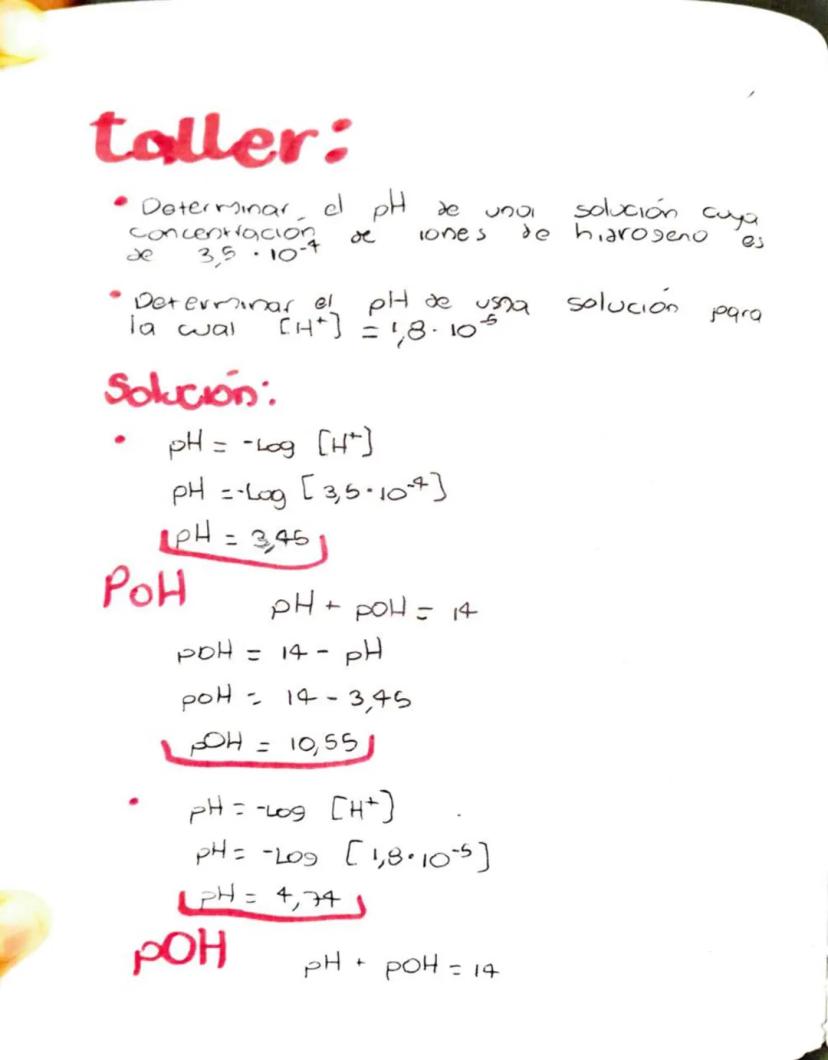 taller:
• Determinar el pH de una solución cuya
concentración de iones de hidrogeno es
de 3,5 · 10⁻⁴
• Determinar el pH de una solución para
la cual [H⁺] = 1,8 · 10⁻⁵
Solución:
• pH = -Log [H⁺]
pH = -Log [3,5 · 10⁻⁴]
pH = 3,45
PoH pH + pOH = 14
pOH = 14 - pH
poH = 14 - 3,45
pOH = 10,55
• pH = -Log [H⁺]
pH = -Log [1,8 · 10⁻⁵]
pH = 4,74
pOH pH + pOH = 14